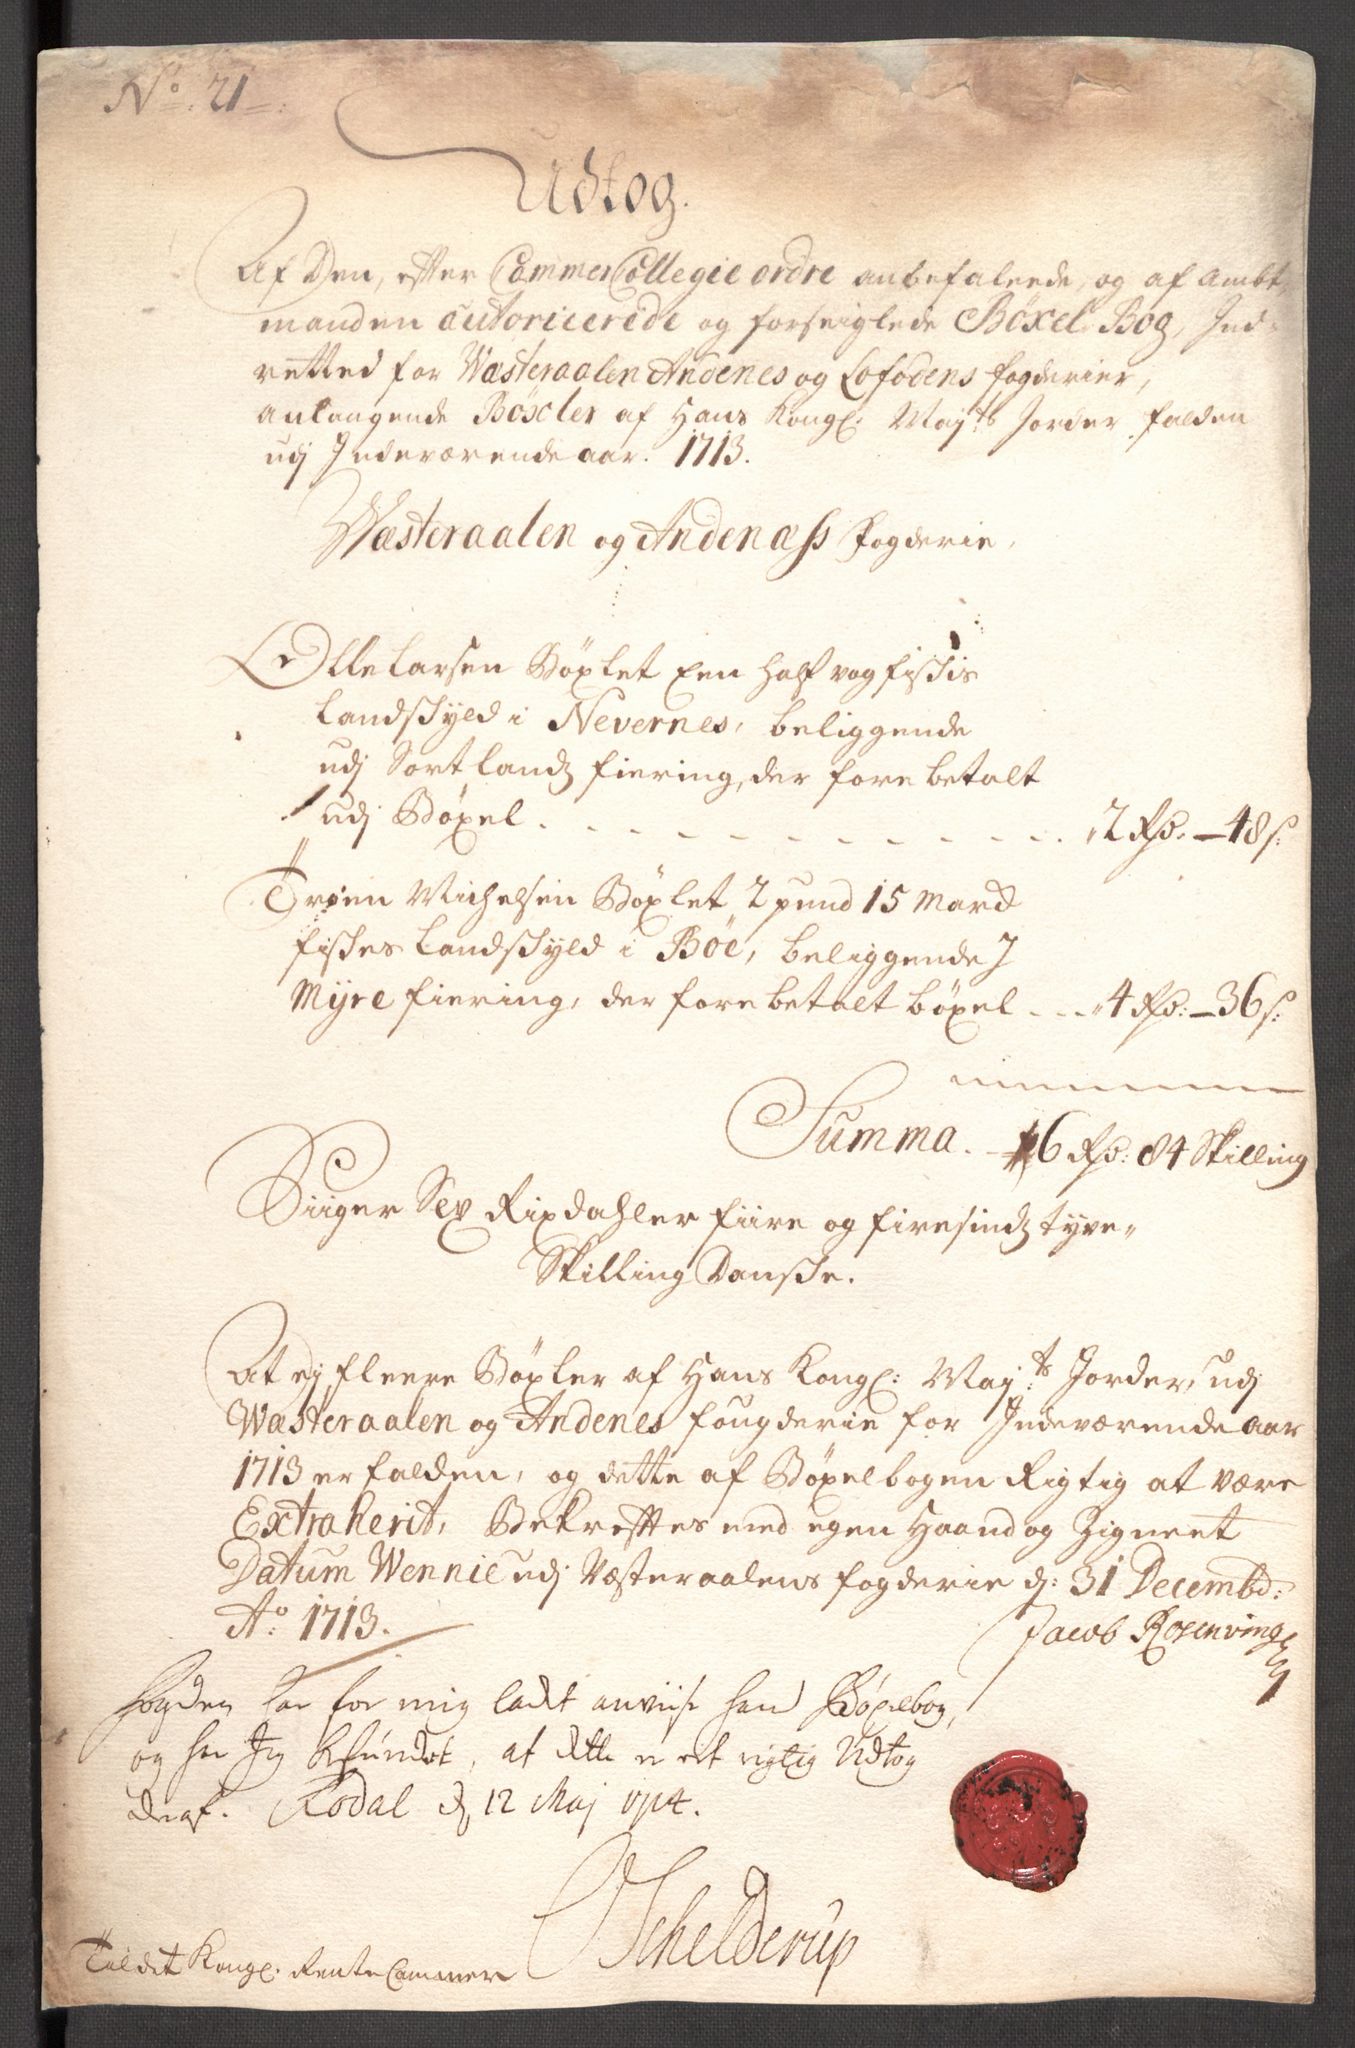 No: 21
Udtog.
Af Den, efter CammerCollegie ordre anbefalede, og af Ambt,
manden autoricerede og forseiglede Böxel Bog, Ind-
retted for Wæsteraalen Andenes og Lofodens fogderier,
anlangende Böxler af Hans Kongl: May:ts Jorder falden
udj Indeværende aar. 1713.
Wæsteraalen og Andenæss Fogderie.
Olle Larsen Böxlet Een half vog fisches
Landschyld i Nevernes, beliggende
udj Sortlandz fiering, der fore betalt
udj Böxel . . . . 2 Rd. - 48 s:
Troen Michelsen Böxlet 2 pund 15 Marck
fisches Landschyld i Böe, beliggende J
Myre fiering, der fore betalt böxel - - - 4 Rd: - 36 s:
Summa. - 6 Rd: 84 Skilling
Siiger Sex Rixdahler fiire og firesindz tyve
Skilling Dansche.
At ej fleere Böxler af Hans Kongl: May:ts Jorder, udj
Wæsteraalen og Andenes fougderie for Indeværende aar
1713 er falden, og dette af Böxelbogen Rigtig at være
Extraherit, Bekreftes med egen Haand og Zigneet
Datum Wennie udj Væsteraalens fogderie d: 31 Decembd:
Ao: 1713.
Jacob Rosenvinge
Fogden har for mig ladet anviise sand Böxelbog,
og har Jeg befundet, at dette er et rigtig Udtog
deraf. Rodal d. 12 Maj 1714.
Schelderup
Till det Kongl: Rente Cammer